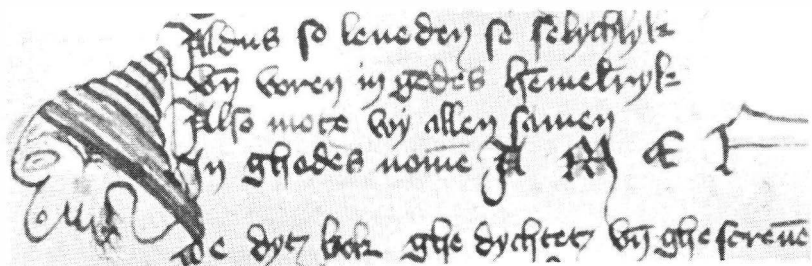 Aldus so leueden se selychlyk
vn̄ voren in godes hēmelryk
Also mote wy allen samen
In ghodes nomē A M E N
De dyt bok ghe dychtet vn̄ ghescreuē